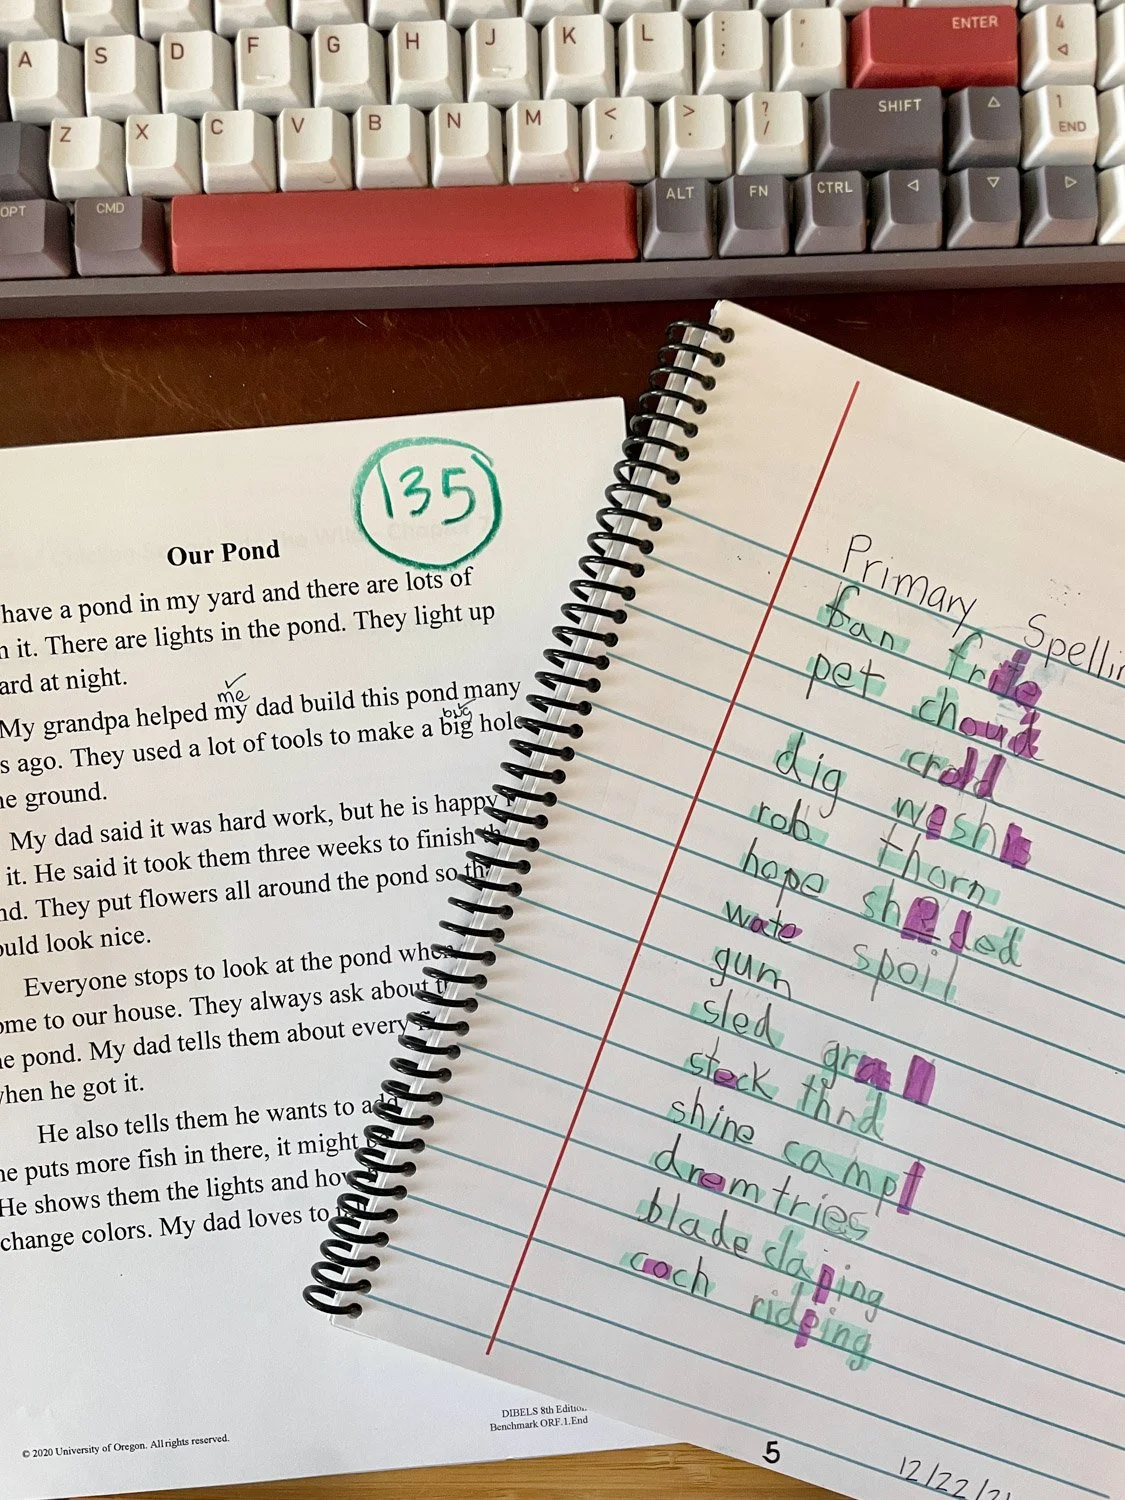 A S D F G H J K L : ; " ' ENTER 4
Z X C V B N M < , > . ? / SHIFT 1 END
OPT CMD ALT FN CTRL
135
Our Pond
have a pond in my yard and there are lots of
n it. There are lights in the pond. They light up
ard at night.
me
My grandpa helped my dad build this pond many
bug
s ago. They used a lot of tools to make a big hole
ne ground.
My dad said it was hard work, but he is happy
it. He said it took them three weeks to finish
nd. They put flowers all around the pond so th
ould look nice.
Everyone stops to look at the pond when
ome to our house. They always ask about t
ne pond. My dad tells them about every
when he got it.
He also tells them he wants to add
ne puts more fish in there, it might
He shows them the lights and how
change colors. My dad loves to
© 2020 University of Oregon. All rights reserved.
DIBELS 8th Edition
Benchmark ORF.1.End
Primary Spellin
fan
pet
dig
rob
hope
wate
gun
sled
steck
shine
drem
blade
coch
choud
thorn
sheded
spoil
thrd
campt
tries
claping
ridping
5
12/22/21